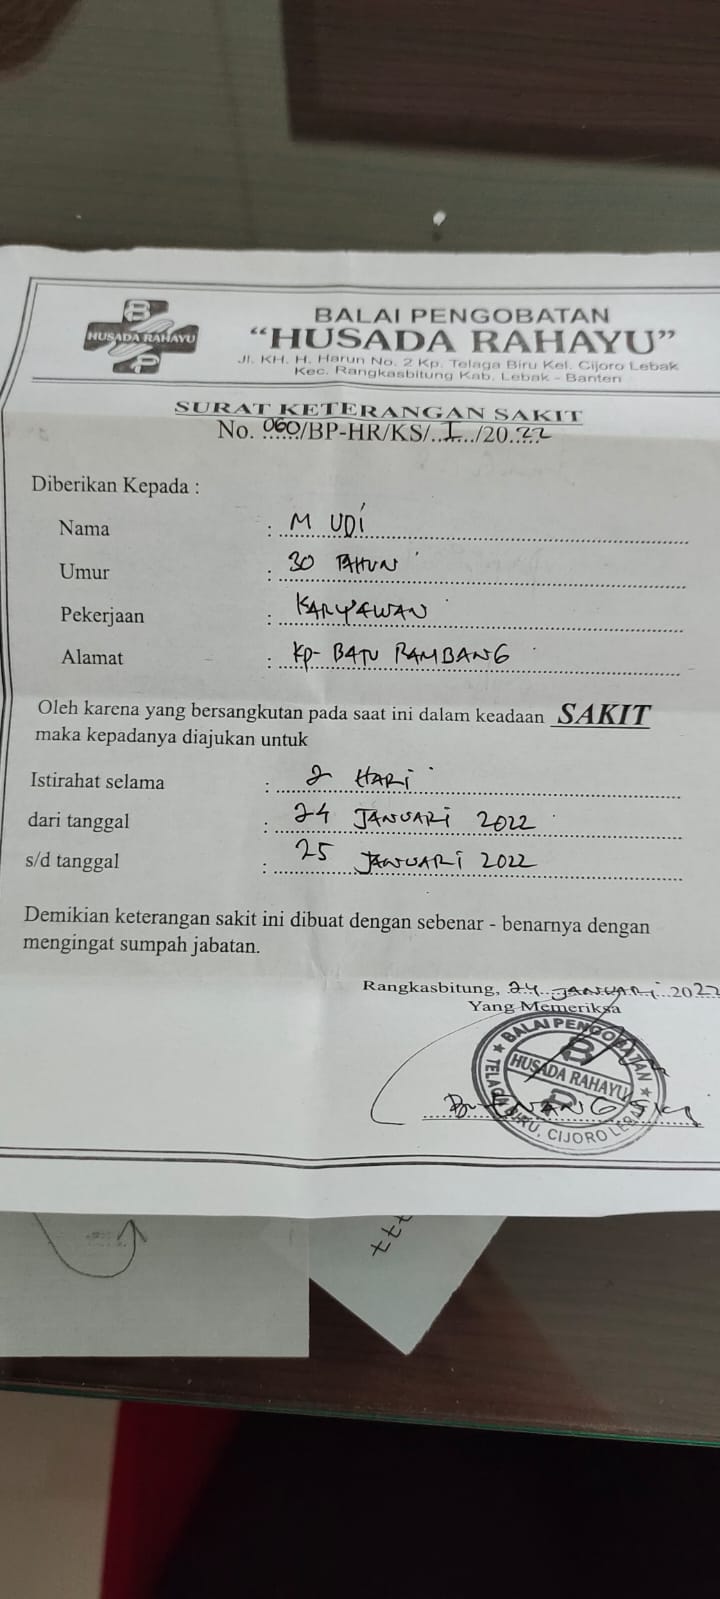 HUSADA RAHAYU
BALAI PENGOBATAN
"HUSADA RAHAYU"
Jl. KH. H. Harun No. 2 Kp. Telaga Biru Kel. Cijoro Lebak
Kec. Rangkasbitung Kab. Lebak - Banten
SURAT KETERANGAN SAKIT
No. 060/BP-HR/KS/..I../2022
Diberikan Kepada :
Nama : M UDI
Umur : 30 TAHUN
Pekerjaan : KARYAWAN
Alamat : Kp- BATU RAMBANG
Oleh karena yang bersangkutan pada saat ini dalam keadaan SAKIT
maka kepadanya diajukan untuk
Istirahat selama : 2 HARI
dari tanggal : 24 JANUARI 2022
s/d tanggal : 25 JANUARI 2022
Demikian keterangan sakit ini dibuat dengan sebenar - benarnya dengan
mengingat sumpah jabatan.
Rangkasbitung, 24 JANUARI 2022
Yang Memeriksa
BALAI PENGOBATAN
HUSADA RAHAYU
TELAGA BIRU, CIJORO LEBAK